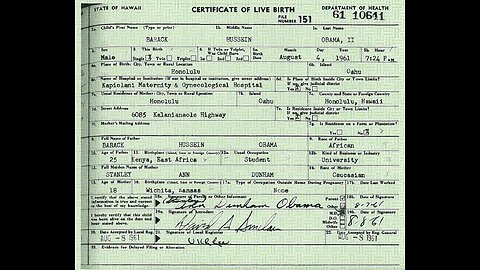 STATE OF HAWAII CERTIFICATE OF LIVE BIRTH DEPARTMENT OF HEALTH
FILE NUMBER 151 61 10641
1a. Child's First Name (Type or print) 1b. Middle Name 1c. Last Name
BARACK HUSSEIN OBAMA, II
2. Sex 3. This Birth 4. If Twin or Triplet, Was Child Born 5a. Birth Date Month Day Year 5b. Hour
Male Single Twin Triplet 1st 2nd 3rd August 4, 1961 7:24 P.M.
6a. Place of Birth: City, Town or Rural Location 6b. Island
Honolulu Oahu
6c. Name of Hospital or Institution (If not in hospital or institution, give street address) 6d. Is Place of Birth Inside City or Town Limits? If no, give judicial district
Kapiolani Maternity & Gynecological Hospital Yes No
7a. Usual Residence of Mother: City, Town or Rural Location 7b. Island 7c. County and State or Foreign Country
Honolulu Oahu Honolulu, Hawaii
7d. Street Address 7e. Is Residence Inside City or Town Limits? If no, give judicial district
6085 Kalanianaole Highway Yes No
7f. Mother's Mailing Address 7g. Is Residence on a Farm or Plantation?
Yes No
8. Full Name of Father 9. Race of Father
BARACK HUSSEIN OBAMA African
10. Age of Father 11. Birthplace (Island, State or Foreign Country) 12a. Usual Occupation 12b. Kind of Business or Industry
25 Kenya, East Africa Student University
13. Full Maiden Name of Mother 14. Race of Mother
STANLEY ANN DUNHAM Caucasian
15. Age of Mother 16. Birthplace (Island, State or Foreign Country) 17a. Type of Occupation Outside Home During Pregnancy 17b. Date Last Worked
18 Wichita, Kansas None
I certify that the above stated information is true and correct to the best of my knowledge. 18a. Signature of Parent or Other Informant Dunham Obama Parent Other 18b. Date of Signature 8-7-61
I hereby certify that this child was born alive on the date and hour stated above. 19a. Signature of Attendant David A Sinclair M.D. D.O. Midwife Other 19b. Date of Signature 8-8-61
20. Date Accepted by Local Reg. 21. Signature of Local Registrar 22. Date Accepted by Reg. General
AUG -8 1961 AUG -8 1961
23. Evidence for Delayed Filing or Alteration